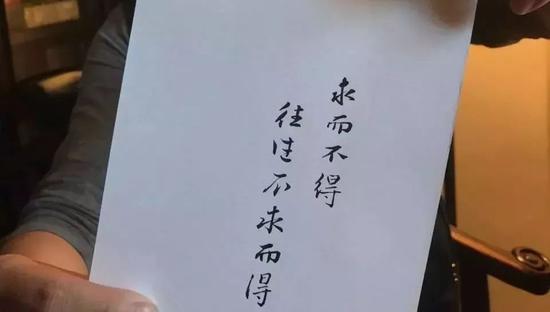 求而不得
往往不求而得